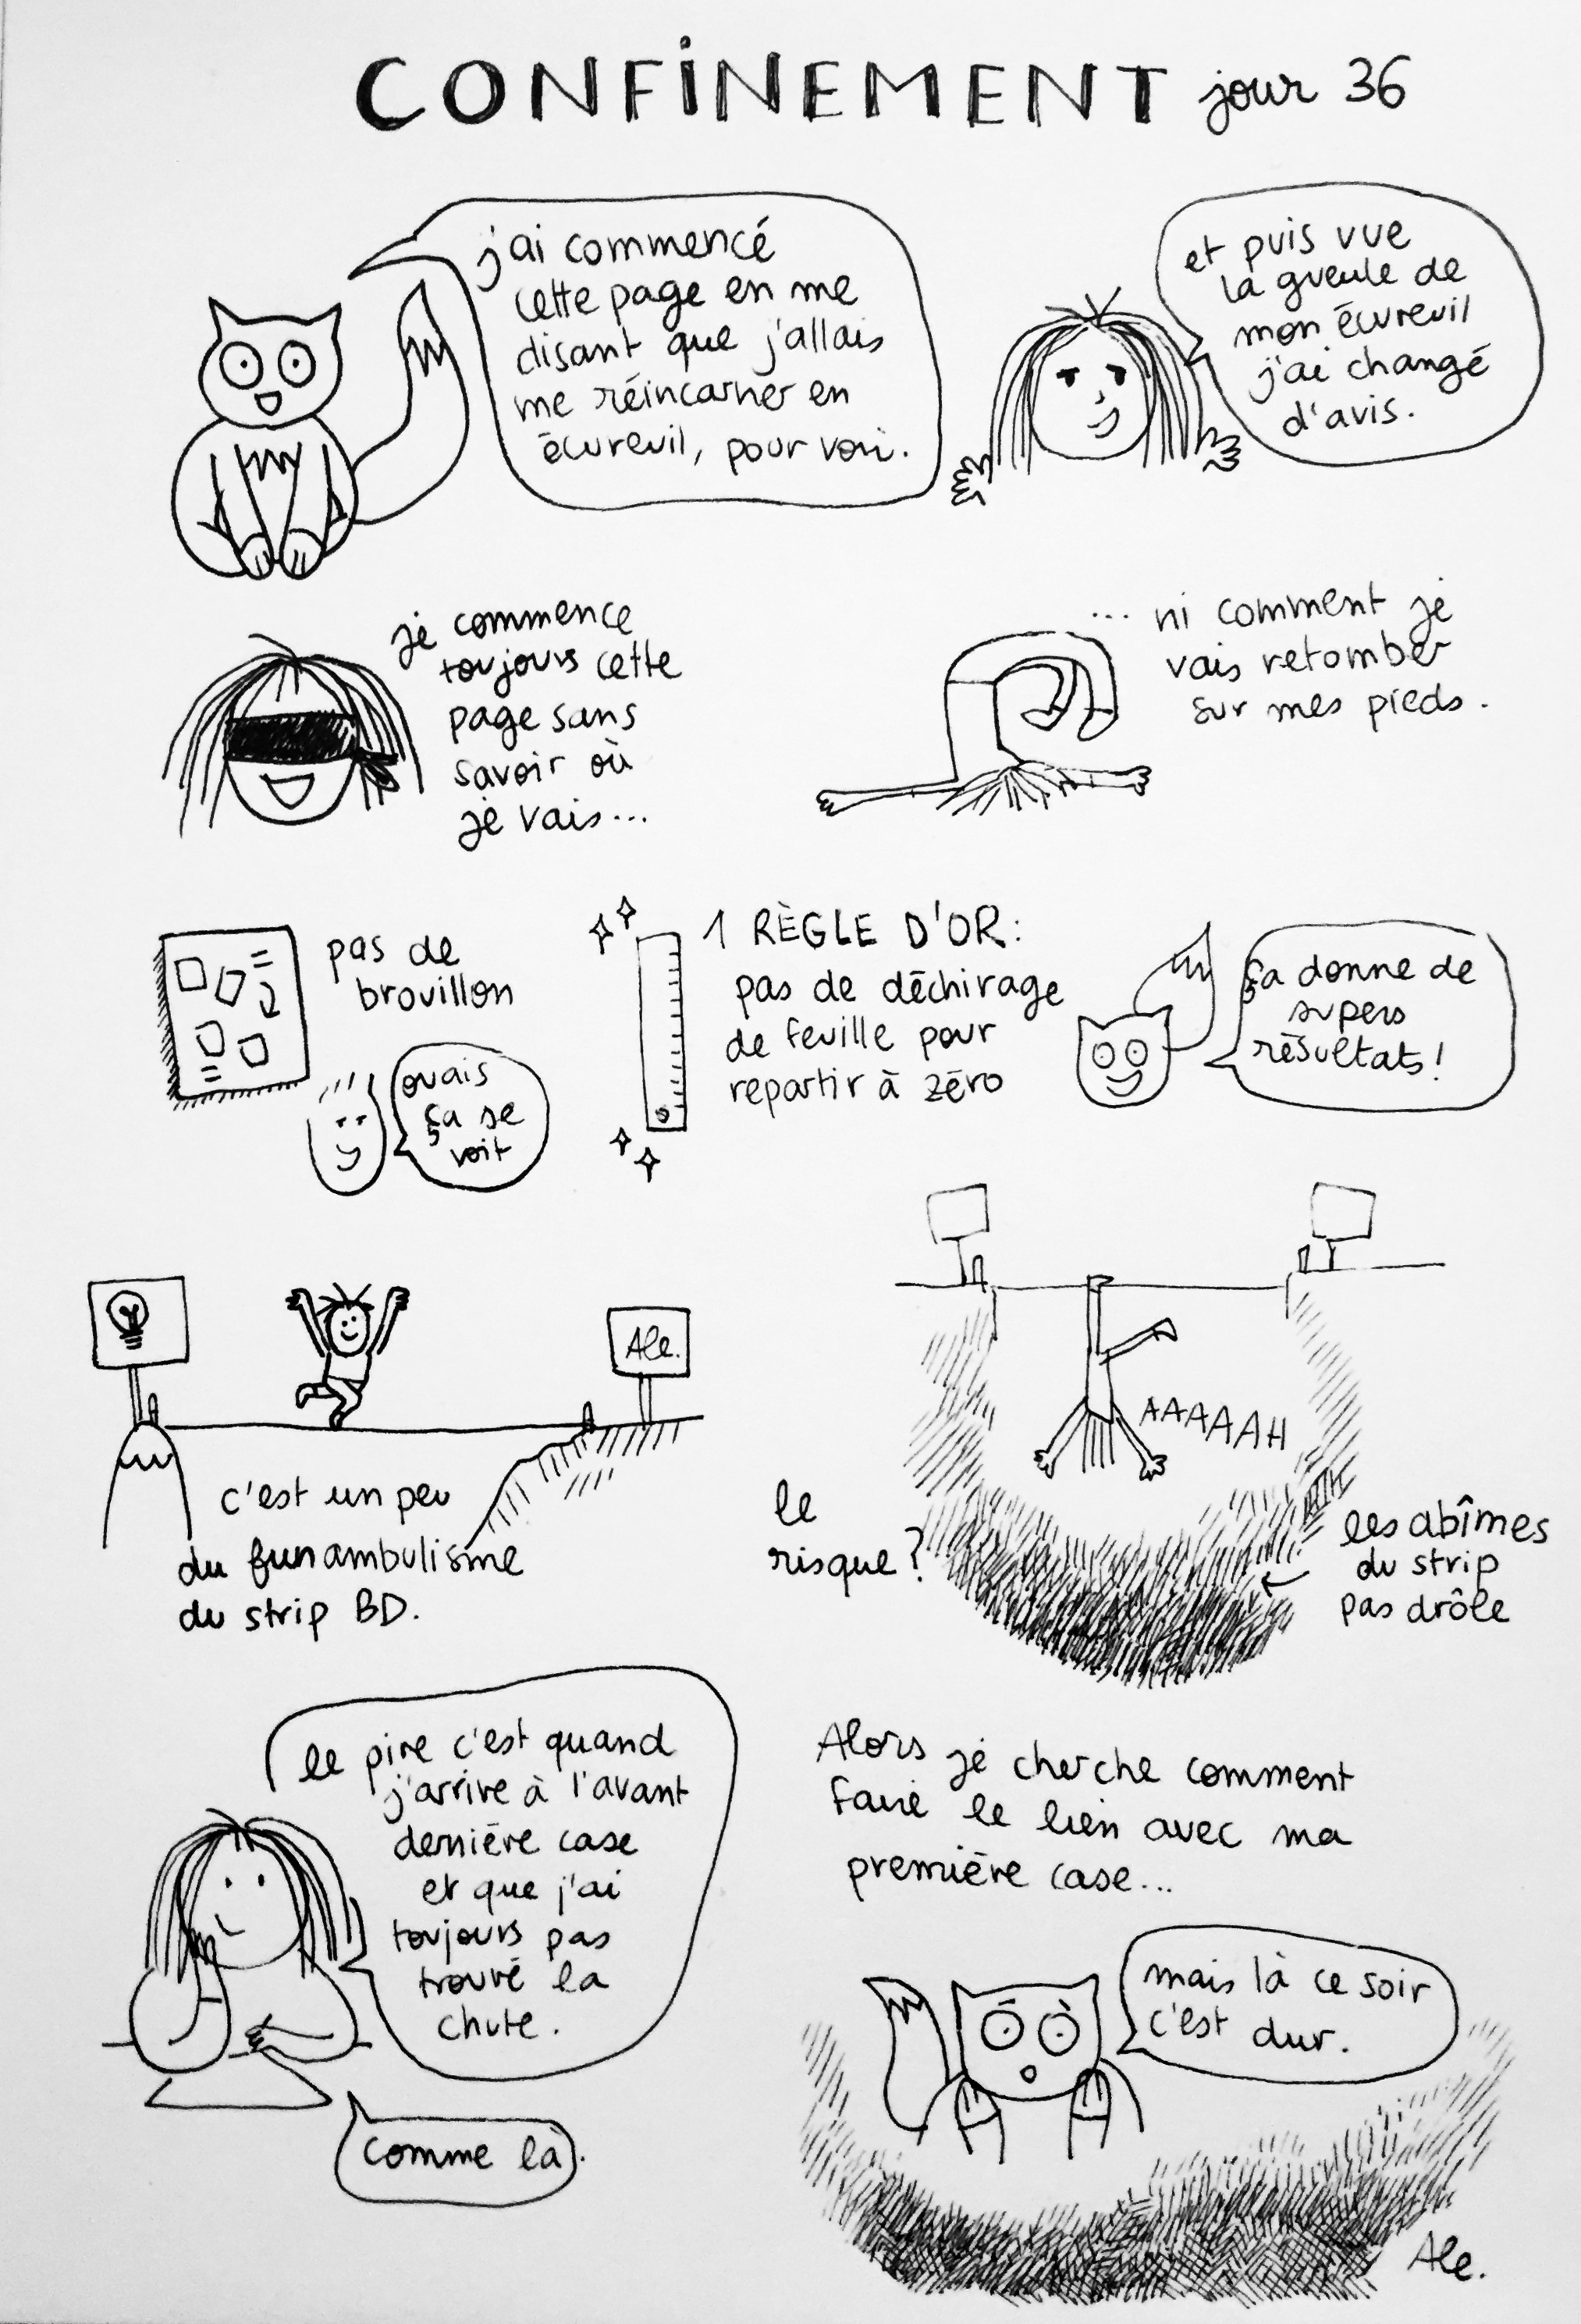 CONFINEMENT jour 36
j'ai commencé
cette page en me
disant que j'allais
me réincarner en
écureuil, pour voir.
et puis vue
la gueule de
mon écureuil
j'ai changé
d'avis.
je commence
toujours cette
page sans
savoir où
je vais...
... ni comment je
vais retomber
sur mes pieds.
pas de
brouillon
ouais
ça se
voit
1 RÈGLE D'OR:
pas de déchirage
de feuille pour
repartir à zéro
ça donne de
supers
résultats!
Ale.
c'est un peu
du funambulisme
du strip BD.
AAAAAH
le
risque?
les abîmes
du strip
pas drôle
le pire c'est quand
j'arrive à l'avant
dernière case
et que j'ai
toujours pas
trouvé la
chute.
comme là.
Alors je cherche comment
faire le lien avec ma
première case...
mais là ce soir
c'est dur.
Ale.